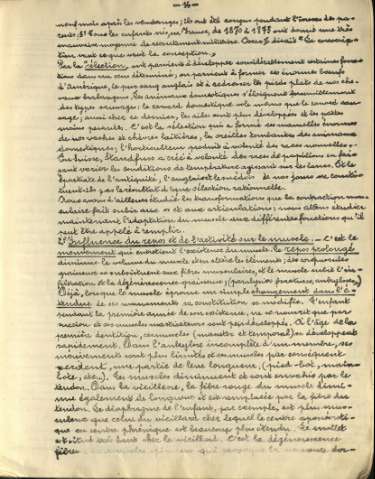 — 14 —
neuf mois après les vendanges; ils ont été conçus pendant l'ivresse des pa-
rents. Les enfants nés, en France, de 1870 à 1875 ont donné une très
mauvaise moyenne de recrutement militaire.
tion vaut ce que vaut la conception.
Par la sélection, on parvient à développer considérablement certaines fonc-
tions dans un sens déterminé; on parvient à former ces énormes bœufs
d'Amérique, le porc anglais et à redresser les pieds plats de nos che-
vaux. Les animaux domestiques s'éloignent
des types sauvages; le canard domestique vole moins que le canard sau-
vage; aussi chez ce dernier, les ailes sont plus développées et les pattes
moins pesantes. C'est la sélection qui a formé ces mamelles énormes
de nos vaches et chèvres laitières, les oreilles tombantes des animaux
domestiques; l'horticulteur produit à volonté des races nouvelles.
En Suisse, Standfuss a créé à volonté des races de papillons en fai-
sant varier les conditions de température agissant sur les larves. Et le
de l'antiquité, l' de nos jours ne consti-
tuent-ils pas le résultat d'une sélection rationnelle.
Nous avons d'ailleurs étudié les transformations que la contraction mus-
culaire fait subir aux os et aux articulations; nous allons étudier
maintenant l'adaptation du muscle aux différentes fonctions qu'il
peut être appelé à remplir.
2° Influence du repos et de l'activité sur le muscle. — C'est le
mouvement qui entretient l'existence du muscle. Le repos prolongé
diminue le volume du muscle et en altère les éléments; des corpuscules
graisseux se substituent aux fibres musculaires, et le muscle subit l'in-
filtration et la dégénérescence graisseuse (paralysies, fractures, ankyloses)
Déjà, lorsque le muscle éprouve un simple changement dans l'é-
tendue de ses mouvements sa constitution se modifie. L'enfant
pendant la première année de son existence, ne se nourrit que par
succion et ses muscles masticateurs sont peu développés. A l'âge de la
première dentition, ces muscles (masséter et temporal) se développent
rapidement. Dans l'ankylose incomplète d'un membre, ses
mouvements sont plus limités et ces muscles par conséquent
perdent, une partie de leur longueur, (pied-bot, main-
bote, etc.). Les muscles diminuent de sont envahis par le
tendon. Dans la vieillesse, la fibre rouge du muscle dimi-
nue également de longueur et est remplacée par la fibre du
tendon. Le diaphragme de l'enfant, par exemple, est plus mus-
culeux que celui du vieillard chez lequel le centre aponévroti-
que ou centre phrénique est beaucoup plus étendu. Le mollet
est situé plus haut chez le vieillard. C'est la dégénérescence
fibreuse